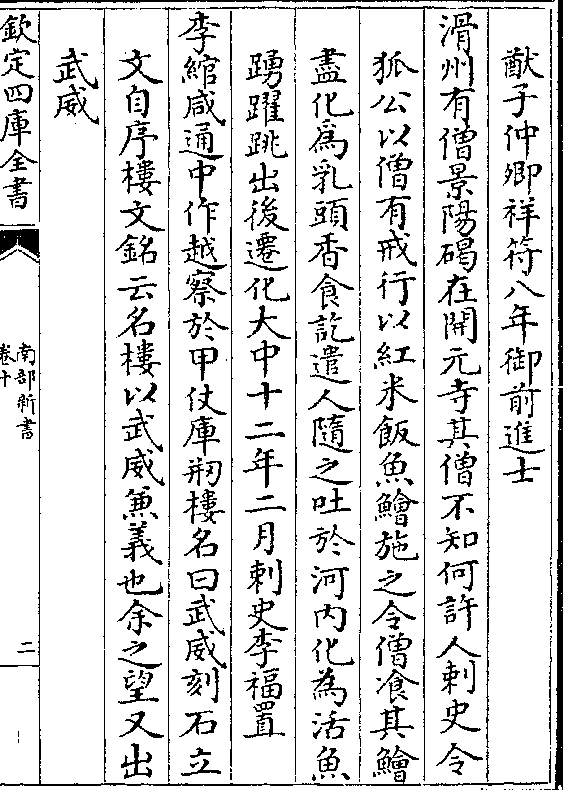 猷子仲卿祥符八年御前進士
滑州有僧景陽碣在開元寺其僧不知何許人刺史令
狐公以僧有戒行以紅米飯魚鱠施之令僧飡其鱠
盡化為乳頭香食訖遣人隨之吐於河内化為活魚
踴躍跳出後遷化大中十二年二月刺史李福置
李綰咸通中作越察於甲仗庫剏樓名曰武威刻石立
文自序樓文銘云名樓以武威兼義也余之望又出
武威
欽定四庫全書
南部新書
卷十
二